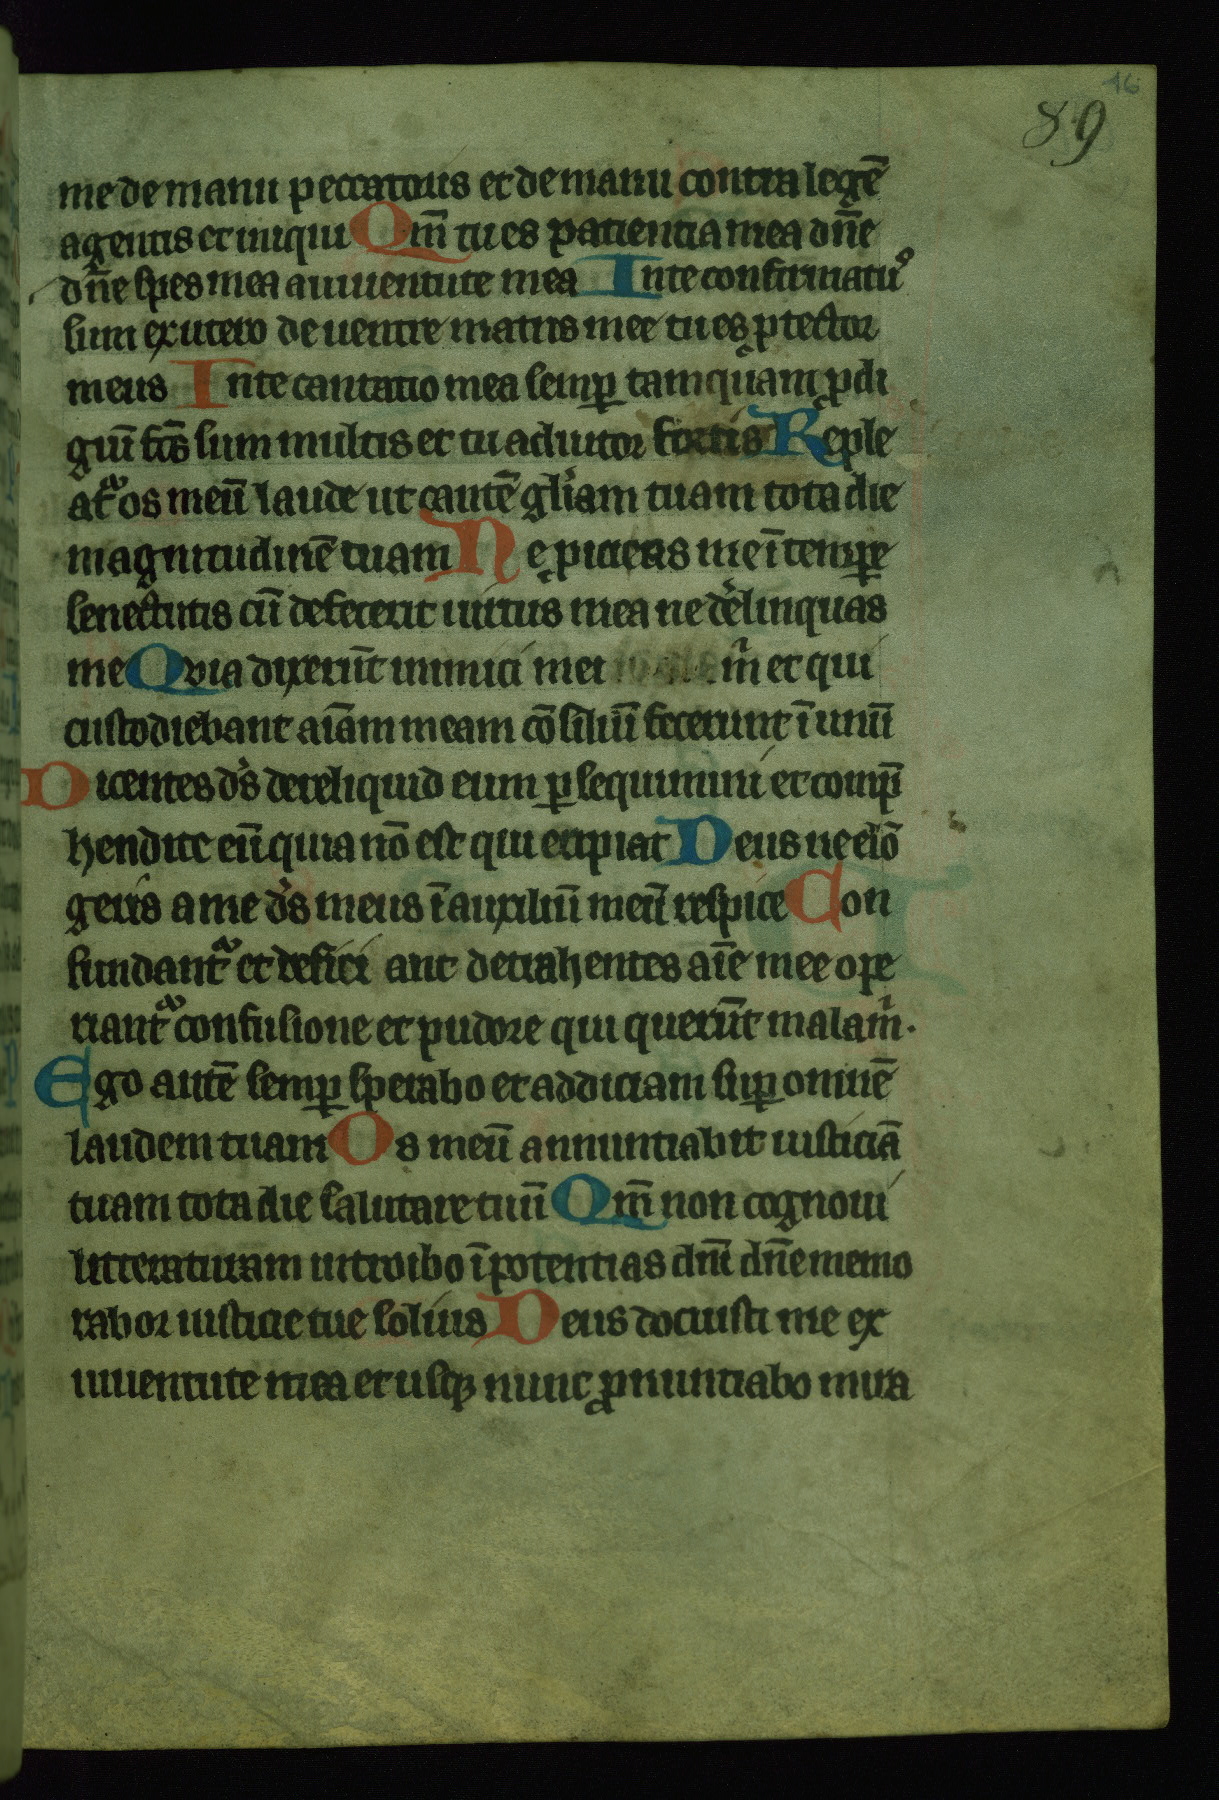 46
89
me de manu peccatoris et de manu contra legē
agentis et iniqui Qm̄ tu es patientia mea dn̄e
dn̄e spes mea a iuuentute mea In te confirmatꝰ
sum ex utero de uentre matris mee tu es ꝓtector
meus In te cantatio mea semꝑ tamquam ꝓdi
giū fcs̄ sum multis et tu adiutor fortis Reple
atᷣ os meū laude ut cantē gl̄iam tuam tota die
magnitudinē tuam Ne ꝓicias me ī temꝑe
senectutis cū defecerit uirtus mea ne derelinquas
me Qvia dixerūt inimici mei m̄ et qui
custodiebant aīam meam cōsiliū fecerunt ī unū
Dicentes ds̄ dereliquid eum ꝑsequimini et comp̄
hendite eū quia nō est qui eripiat Deus ne elō
geris a me ds̄ meus ī auxiliū meū respice Con
fundantᷣ et defici ant detrahentes aīe mee ope
riantᷣ confusione et pudore qui querūt mala m̄.
Ego autē semꝑ sperabo et addiciam suꝑ omnē
laudem tuam Os meū annuntiabit iusticiā
tuam tota die salutare tuū Qm̄ non cognoui
litteraturam introibo ī potentias dn̄i dn̄e memo
rabor iusticie tue solius Deus docuisti me ex
iuuentute mea et usqꝫ nunc ꝓnuntiabo mira